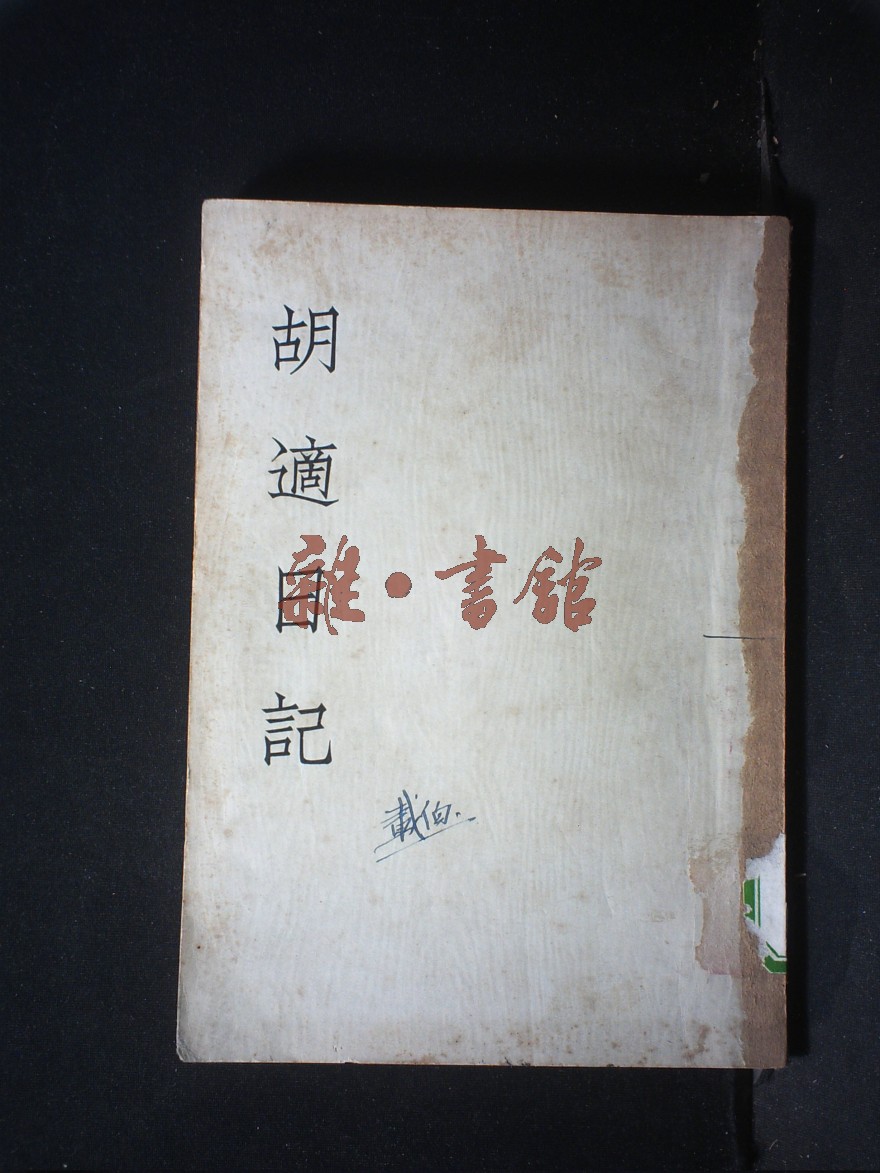 胡適日記
雜·書館
載伯.